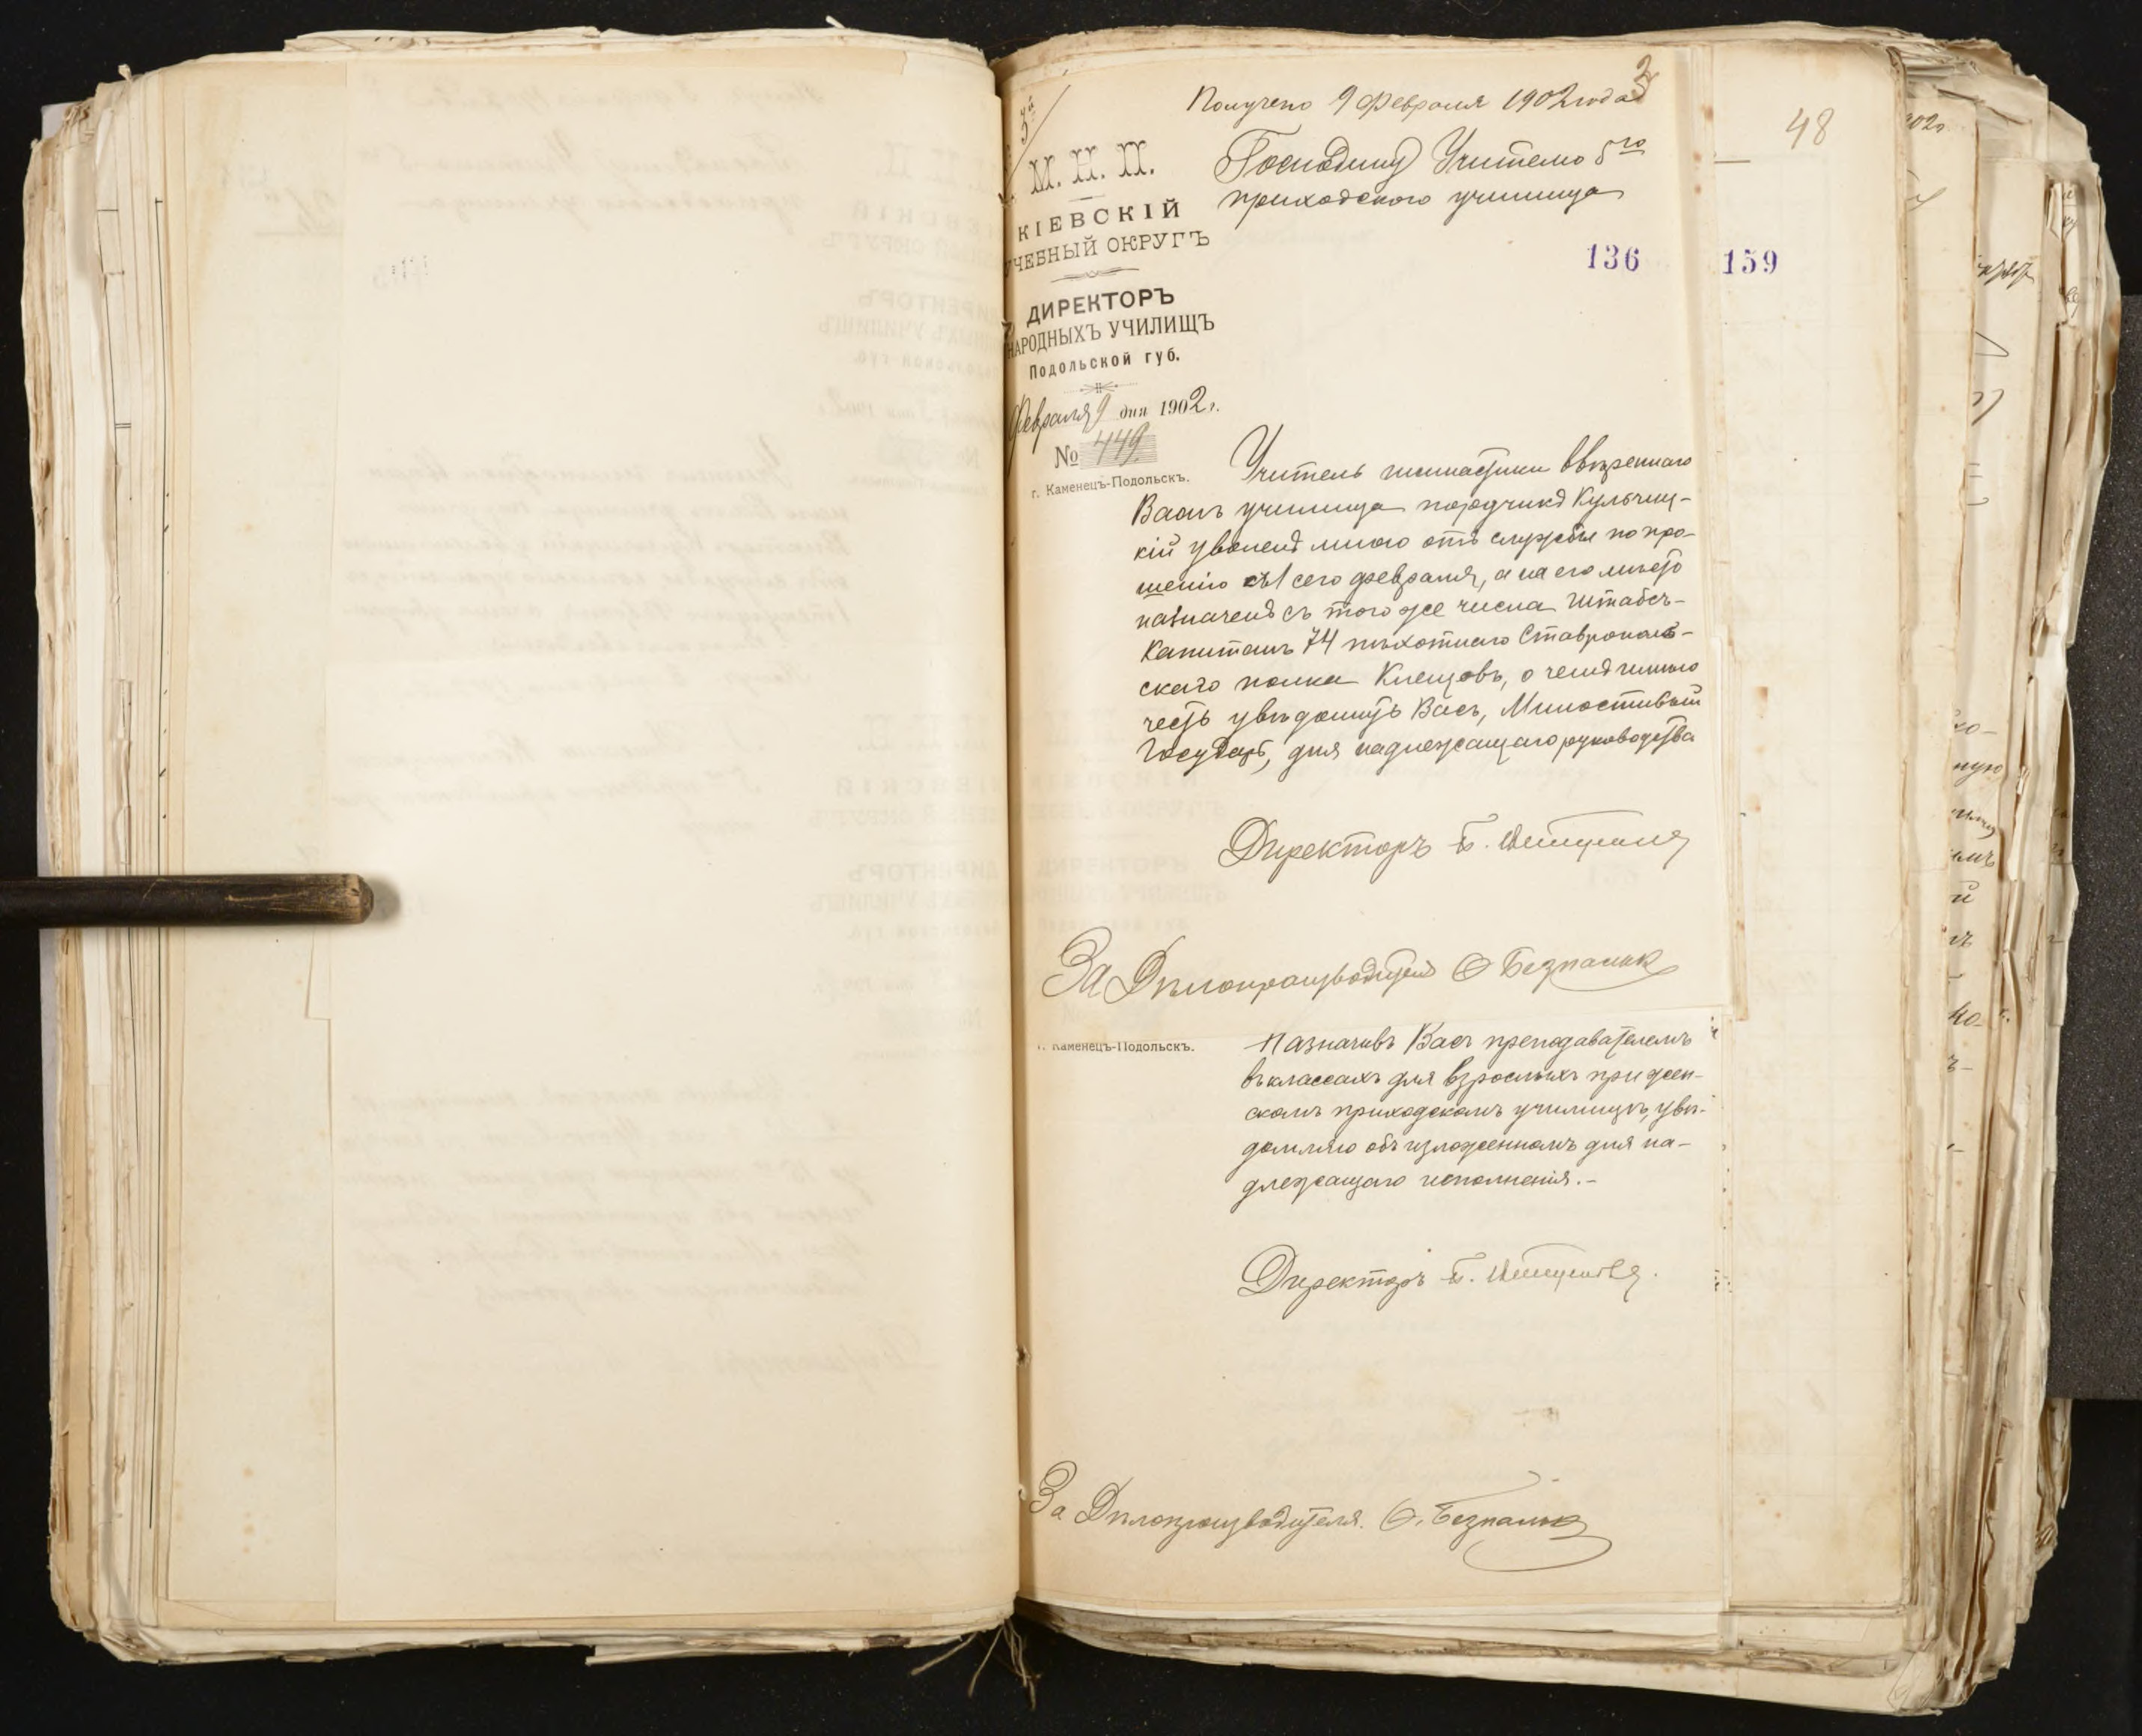 Получено 9 Февраля 1902 года
3
М. Н. П.
КІЕВСКІЙ
УЧЕБНЫЙ ОКРУГЪ
ДИРЕКТОРЪ
НАРОДНЫХЪ УЧИЛИЩЪ
Подольской губ.
Февраля 9 дня 1902 г.
№ 449
г. Каменецъ-Подольскъ.
Господину Учителю 5го
приходского училища
136
159
48
Учитель гимнастики ввѣреннаго
Вамъ училища поручикъ Кульчиц-
кій уволенъ мною отъ службы по про-
шенію съ 1 сего февраля, а на его мѣсто
назначенъ съ того же числа Штабсъ-
Капитанъ 74 пѣхотнаго Ставрополь-
скаго полка Клещовъ, о чемъ имѣю
честь увѣдомить Васъ, Милостивый
Государь, для надлежащаго руководства
Директоръ
За Дѣлопроизводителя О Безпалюк
г. Каменецъ-Подольскъ.
Назначивъ Васъ преподавателемъ
въ классахъ для взрослыхъ при жен-
скомъ приходскомъ училищѣ, увѣ-
домляю объ изложенномъ для на-
длежащаго исполненія.-
Директоръ
За Дѣлопроизводителя. О. Безпалюк